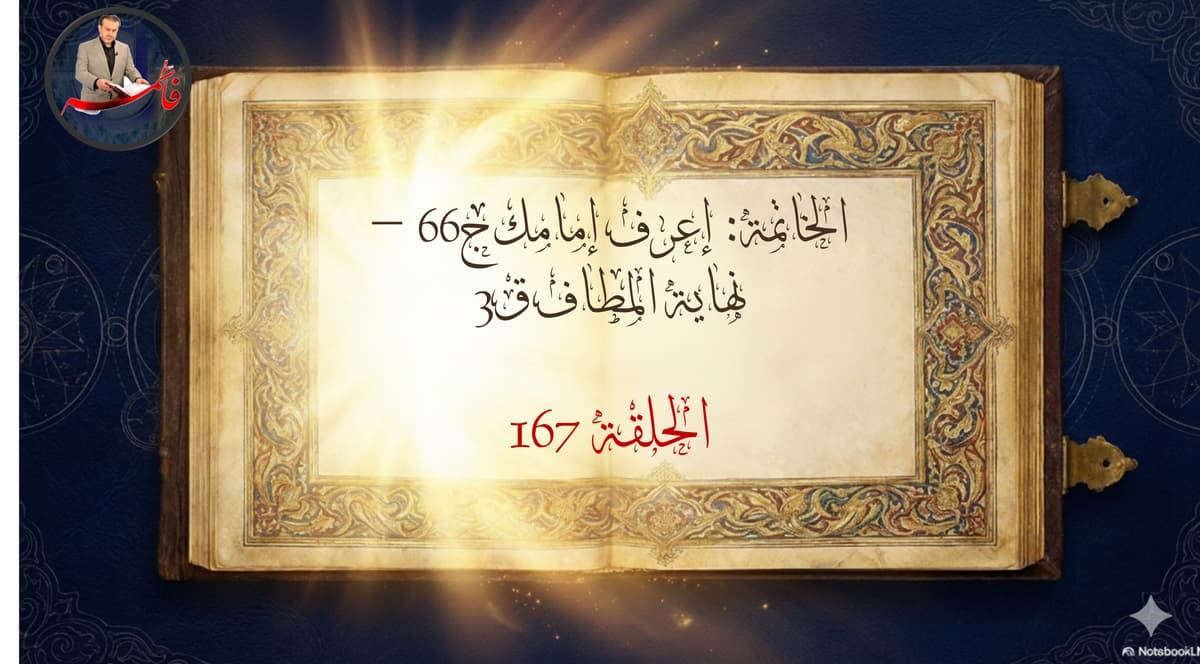 فاطمة
الخاتمة: إعرف إمامك ج66 –
نهاية المطاف ق3
الحلقة 167
NotsbookLM